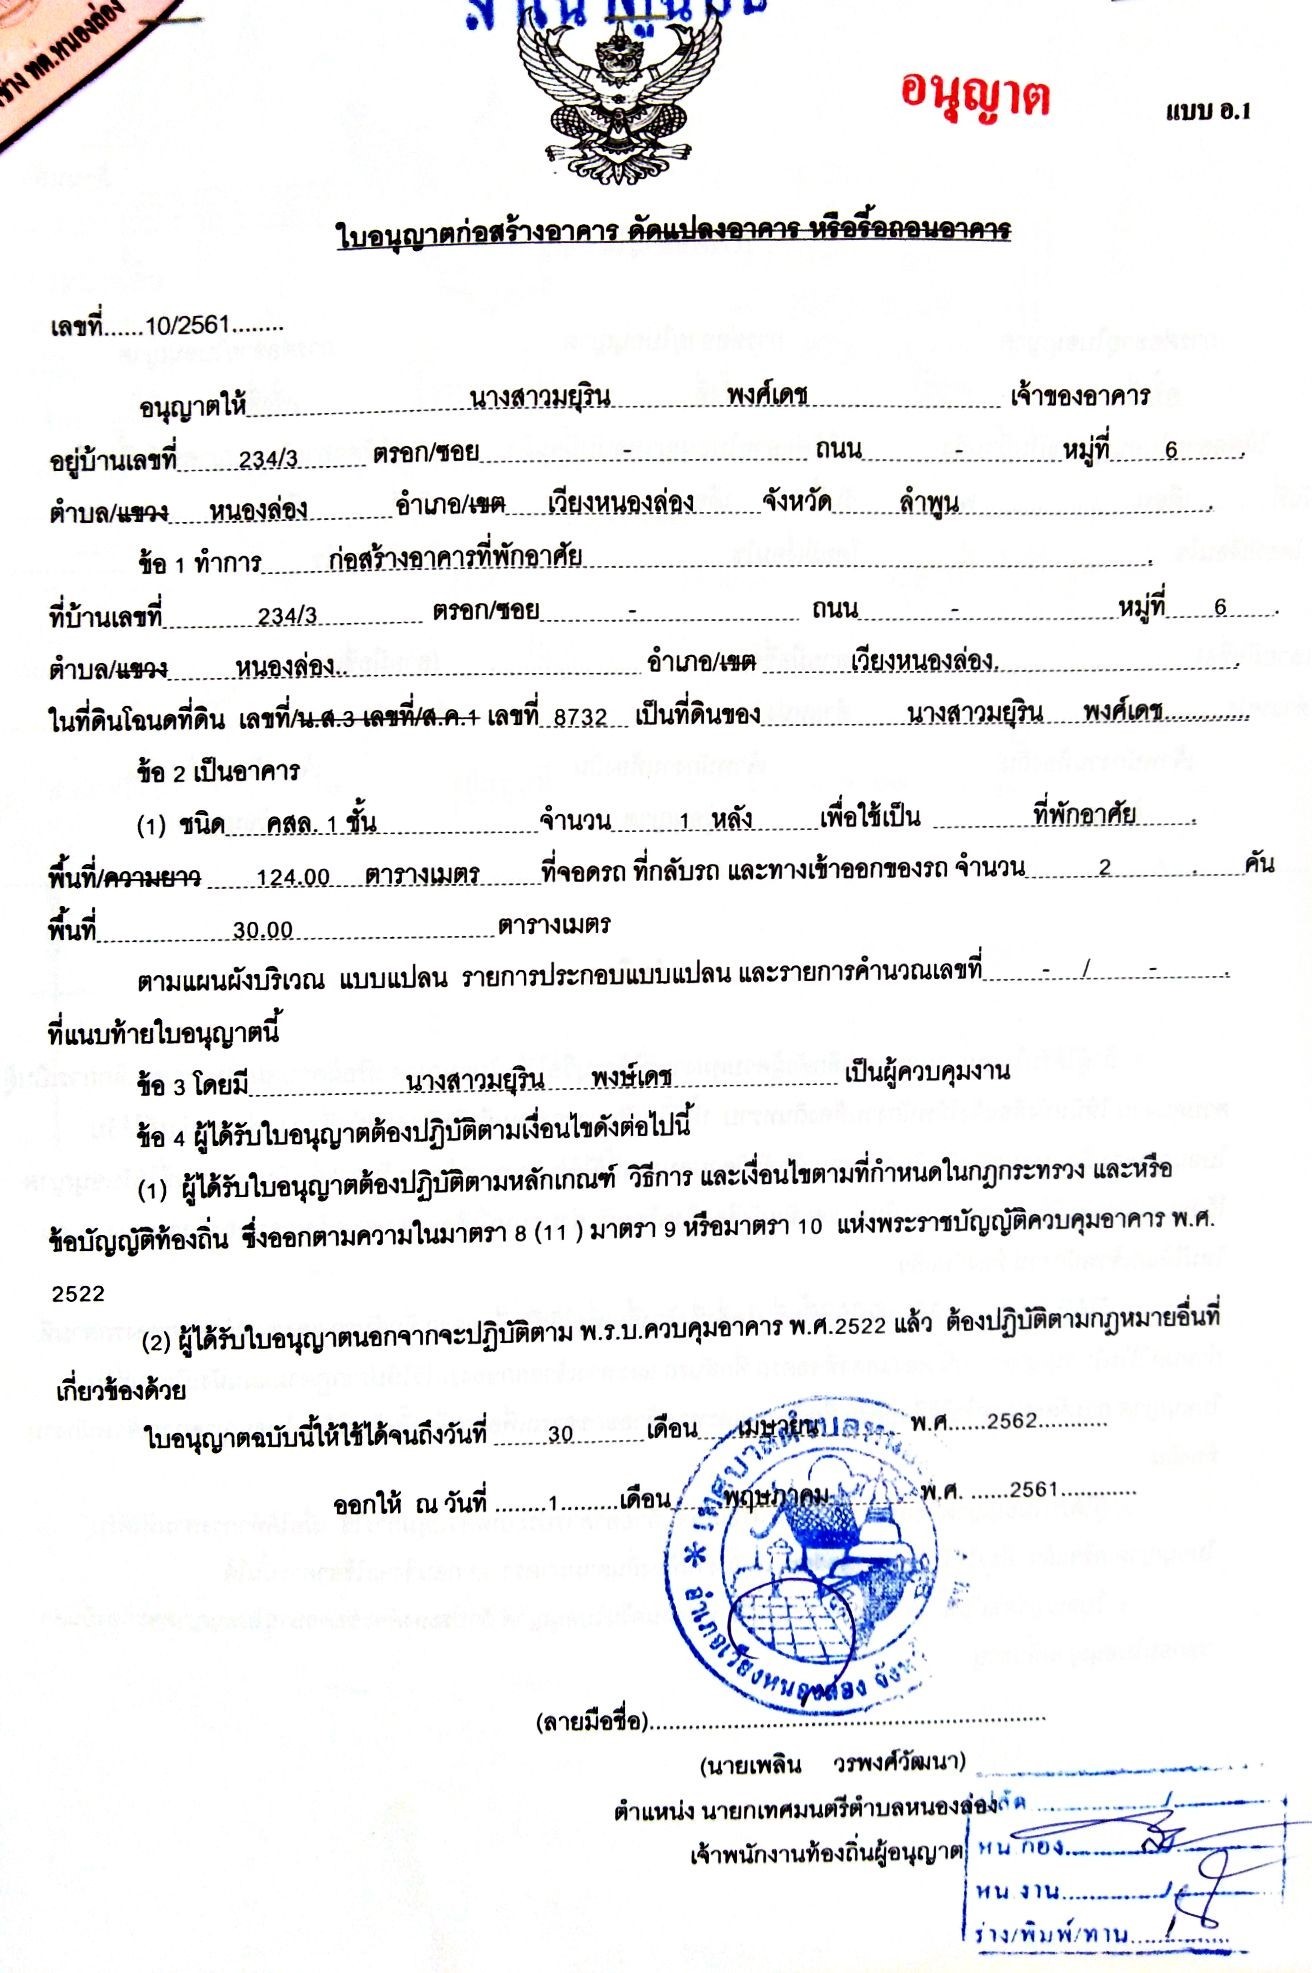 สำเนาคู่ฉบับ
ช่าง ทต.หนองล่อง
อนุญาต
แบบ อ.1
ใบอนุญาตก่อสร้างอาคาร ดัดแปลงอาคาร หรือรื้อถอนอาคาร
เลขที่......10/2561........
อนุญาตให้ นางสาวมยุริน พงศ์เดช เจ้าของอาคาร
อยู่บ้านเลขที่ 234/3 ตรอก/ซอย - ถนน - หมู่ที่ 6 .
ตำบล/แขวง หนองล่อง อำเภอ/เขต เวียงหนองล่อง จังหวัด ลำพูน .
ข้อ 1 ทำการ ก่อสร้างอาคารที่พักอาศัย .
ที่บ้านเลขที่ 234/3 ตรอก/ซอย - ถนน - หมู่ที่ 6 .
ตำบล/แขวง หนองล่อง.. อำเภอ/เขต เวียงหนองล่อง. .
ในที่ดินโฉนดที่ดิน เลขที่/น.ส.3 เลขที่/ส.ค.1 เลขที่ 8732 เป็นที่ดินของ นางสาวมยุริน พงศ์เดช.............
ข้อ 2 เป็นอาคาร
(1) ชนิด คสล. 1 ชั้น จำนวน 1 หลัง เพื่อใช้เป็น ที่พักอาศัย .
พื้นที่/ความยาว 124.00 ตารางเมตร ที่จอดรถ ที่กลับรถ และทางเข้าออกของรถ จำนวน 2 . คัน
พื้นที่ 30.00 ตารางเมตร
ตามแผนผังบริเวณ แบบแปลน รายการประกอบแบบแปลน และรายการคำนวณเลขที่ - / - .
ที่แนบท้ายใบอนุญาตนี้
ข้อ 3 โดยมี นางสาวมยุริน พงษ์เดช เป็นผู้ควบคุมงาน
ข้อ 4 ผู้ได้รับใบอนุญาตต้องปฏิบัติตามเงื่อนไขดังต่อไปนี้
(1) ผู้ได้รับใบอนุญาตต้องปฏิบัติตามหลักเกณฑ์ วิธีการ และเงื่อนไขตามที่กำหนดในกฎกระทรวง และหรือ
ข้อบัญญัติท้องถิ่น ซึ่งออกตามความในมาตรา 8 (11 ) มาตรา 9 หรือมาตรา 10 แห่งพระราชบัญญัติควบคุมอาคาร พ.ศ.
2522
(2) ผู้ได้รับใบอนุญาตนอกจากจะปฏิบัติตาม พ.ร.บ.ควบคุมอาคาร พ.ศ.2522 แล้ว ต้องปฏิบัติตามกฎหมายอื่นที่
เกี่ยวข้องด้วย
ใบอนุญาตฉบับนี้ให้ใช้ได้จนถึงวันที่ 30 เดือน เมษายน พ.ศ.....2562...........
ออกให้ ณ วันที่ ........1.........เดือน พฤษภาคม พ.ศ. ......2561............
เทศบาลตำบล
อำเภอเวียงหนองล่อง
(ลายมือชื่อ)............................................................
(นายเพลิน วรพงศ์วัฒนา)
ตำแหน่ง นายกเทศมนตรีตำบลหนองล่อง
เจ้าพนักงานท้องถิ่นผู้อนุญาต
ปลัด
หน กอง
หน งาน
ร่าง/พิมพ์/ทาน